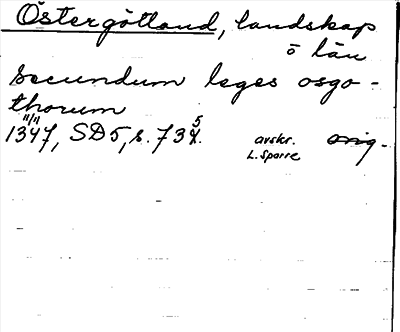 Östergötland, landskap
o län
secundum leges osgo-
thorum
11/11
1347, SD5, s. 735. avskr. orig.
L. Sparre